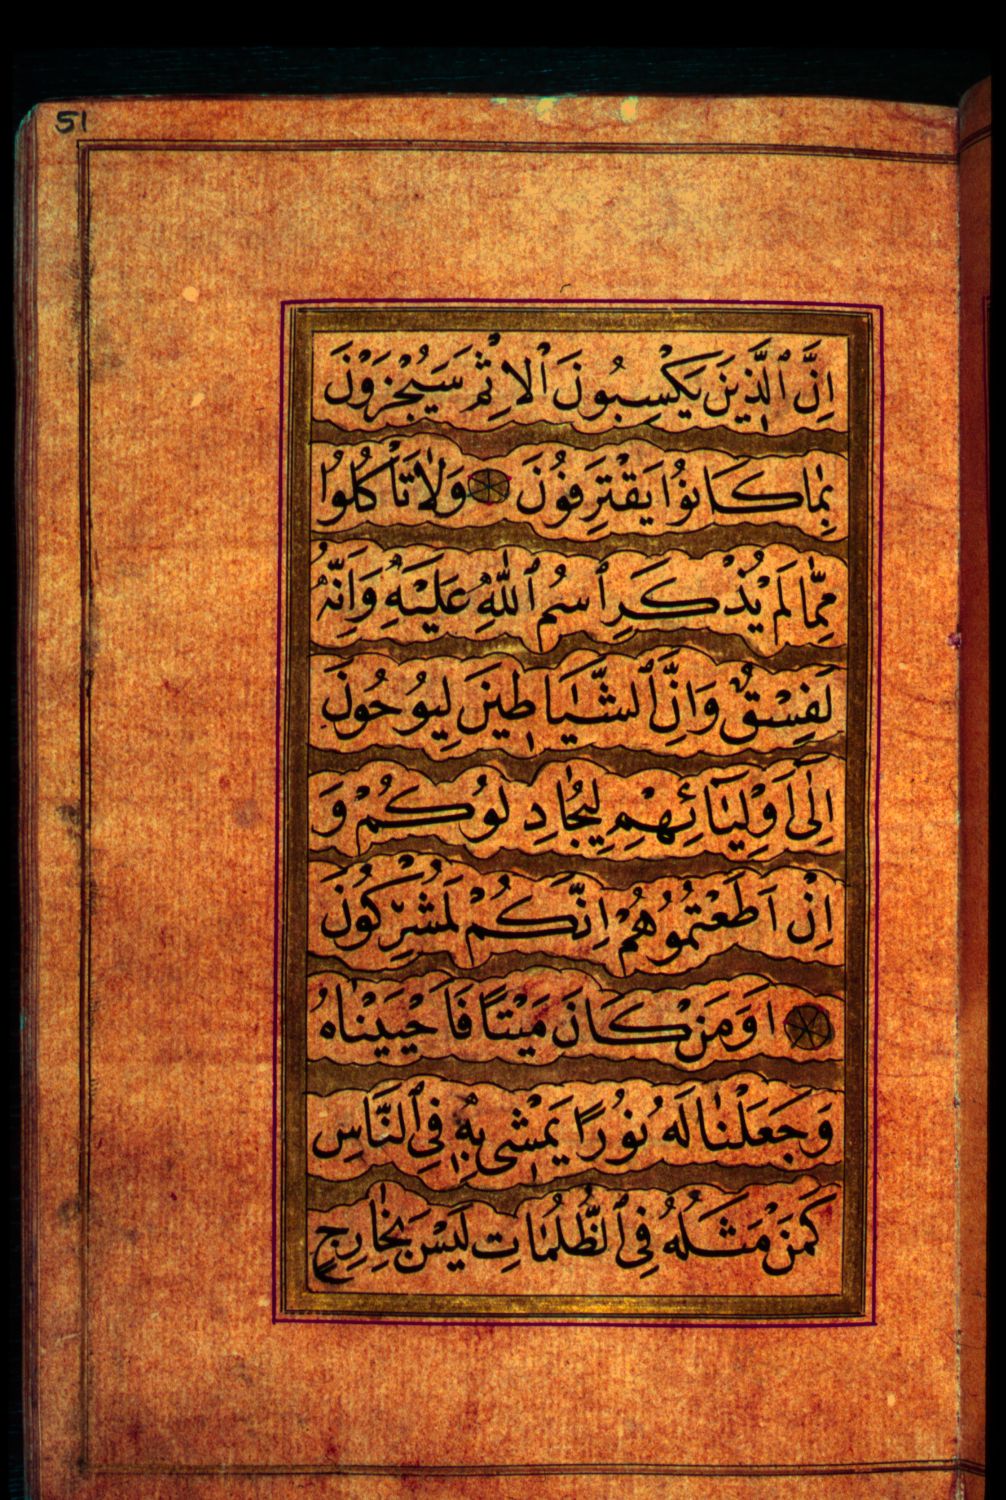 51
اِنَّ ٱلَّذِينَ يَكْسِبُونَ ٱلْاِثْمَ سَيُجْزَوْنَ
بِمَا كَانُوا يَقْتَرِفُونَ وَلَا تَأْكُلُوا
مِمَّا لَمْ يُذْكَرِ ٱسْمُ ٱللّٰهِ عَلَيْهِ وَاِنَّهُ
لَفِسْقٌ وَاِنَّ ٱلشَّيَاطِينَ لَيُوحُونَ
اِلَىٰ اَوْلِيَآئِهِمْ لِيُجَادِلُوكُمْ وَ
اِنْ اَطَعْتُمُوهُمْ اِنَّكُمْ لَمُشْرِكُونَ
اَوَمَنْ كَانَ مَيْتًا فَاَحْيَيْنَاهُ
وَجَعَلْنَا لَهُ نُورًا يَمْشِي بِهِ فِي ٱلنَّاسِ
كَمَنْ مَثَلُهُ فِي ٱلظُّلُمَاتِ لَيْسَ بِخَارِجٍ